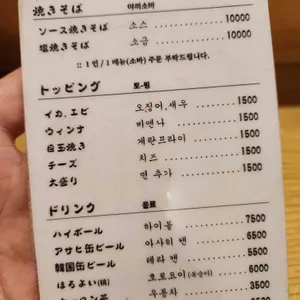 焼きそば 야끼소바
ソース焼きそば 소스 10000
塩焼きそば 소금 10000
:: 1인 / 1메뉴(소바) 주문 부탁드립니다.
トッピング 토-핑
イカ.エビ 오징어.새우 1500
ウィンナ 비엔나 1500
目玉焼き 계란프라이 1500
チーズ 치즈 1500
大盛り 면 추가 1500
ドリンク 음료
ハイボール 하이볼 7500
アサヒ缶ビール 아사히 캔 6500
韓国缶ビール 테라 캔 5500
ほろよい(桃) 호로요이(복숭아) 6000
ウーロン茶 우롱차 3500